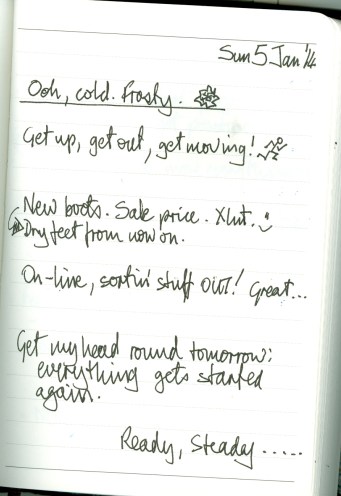 Sun 5 Jan '14
Ooh, cold. Frosty.
Get up, get out, get moving!
New boots. Sale price. Xlnt. :)
Dry feet from now on.
On-line, sortin' stuff OUT! Great...
Get my head round tomorrow;
everything gets started
again.
Ready, Steady .....